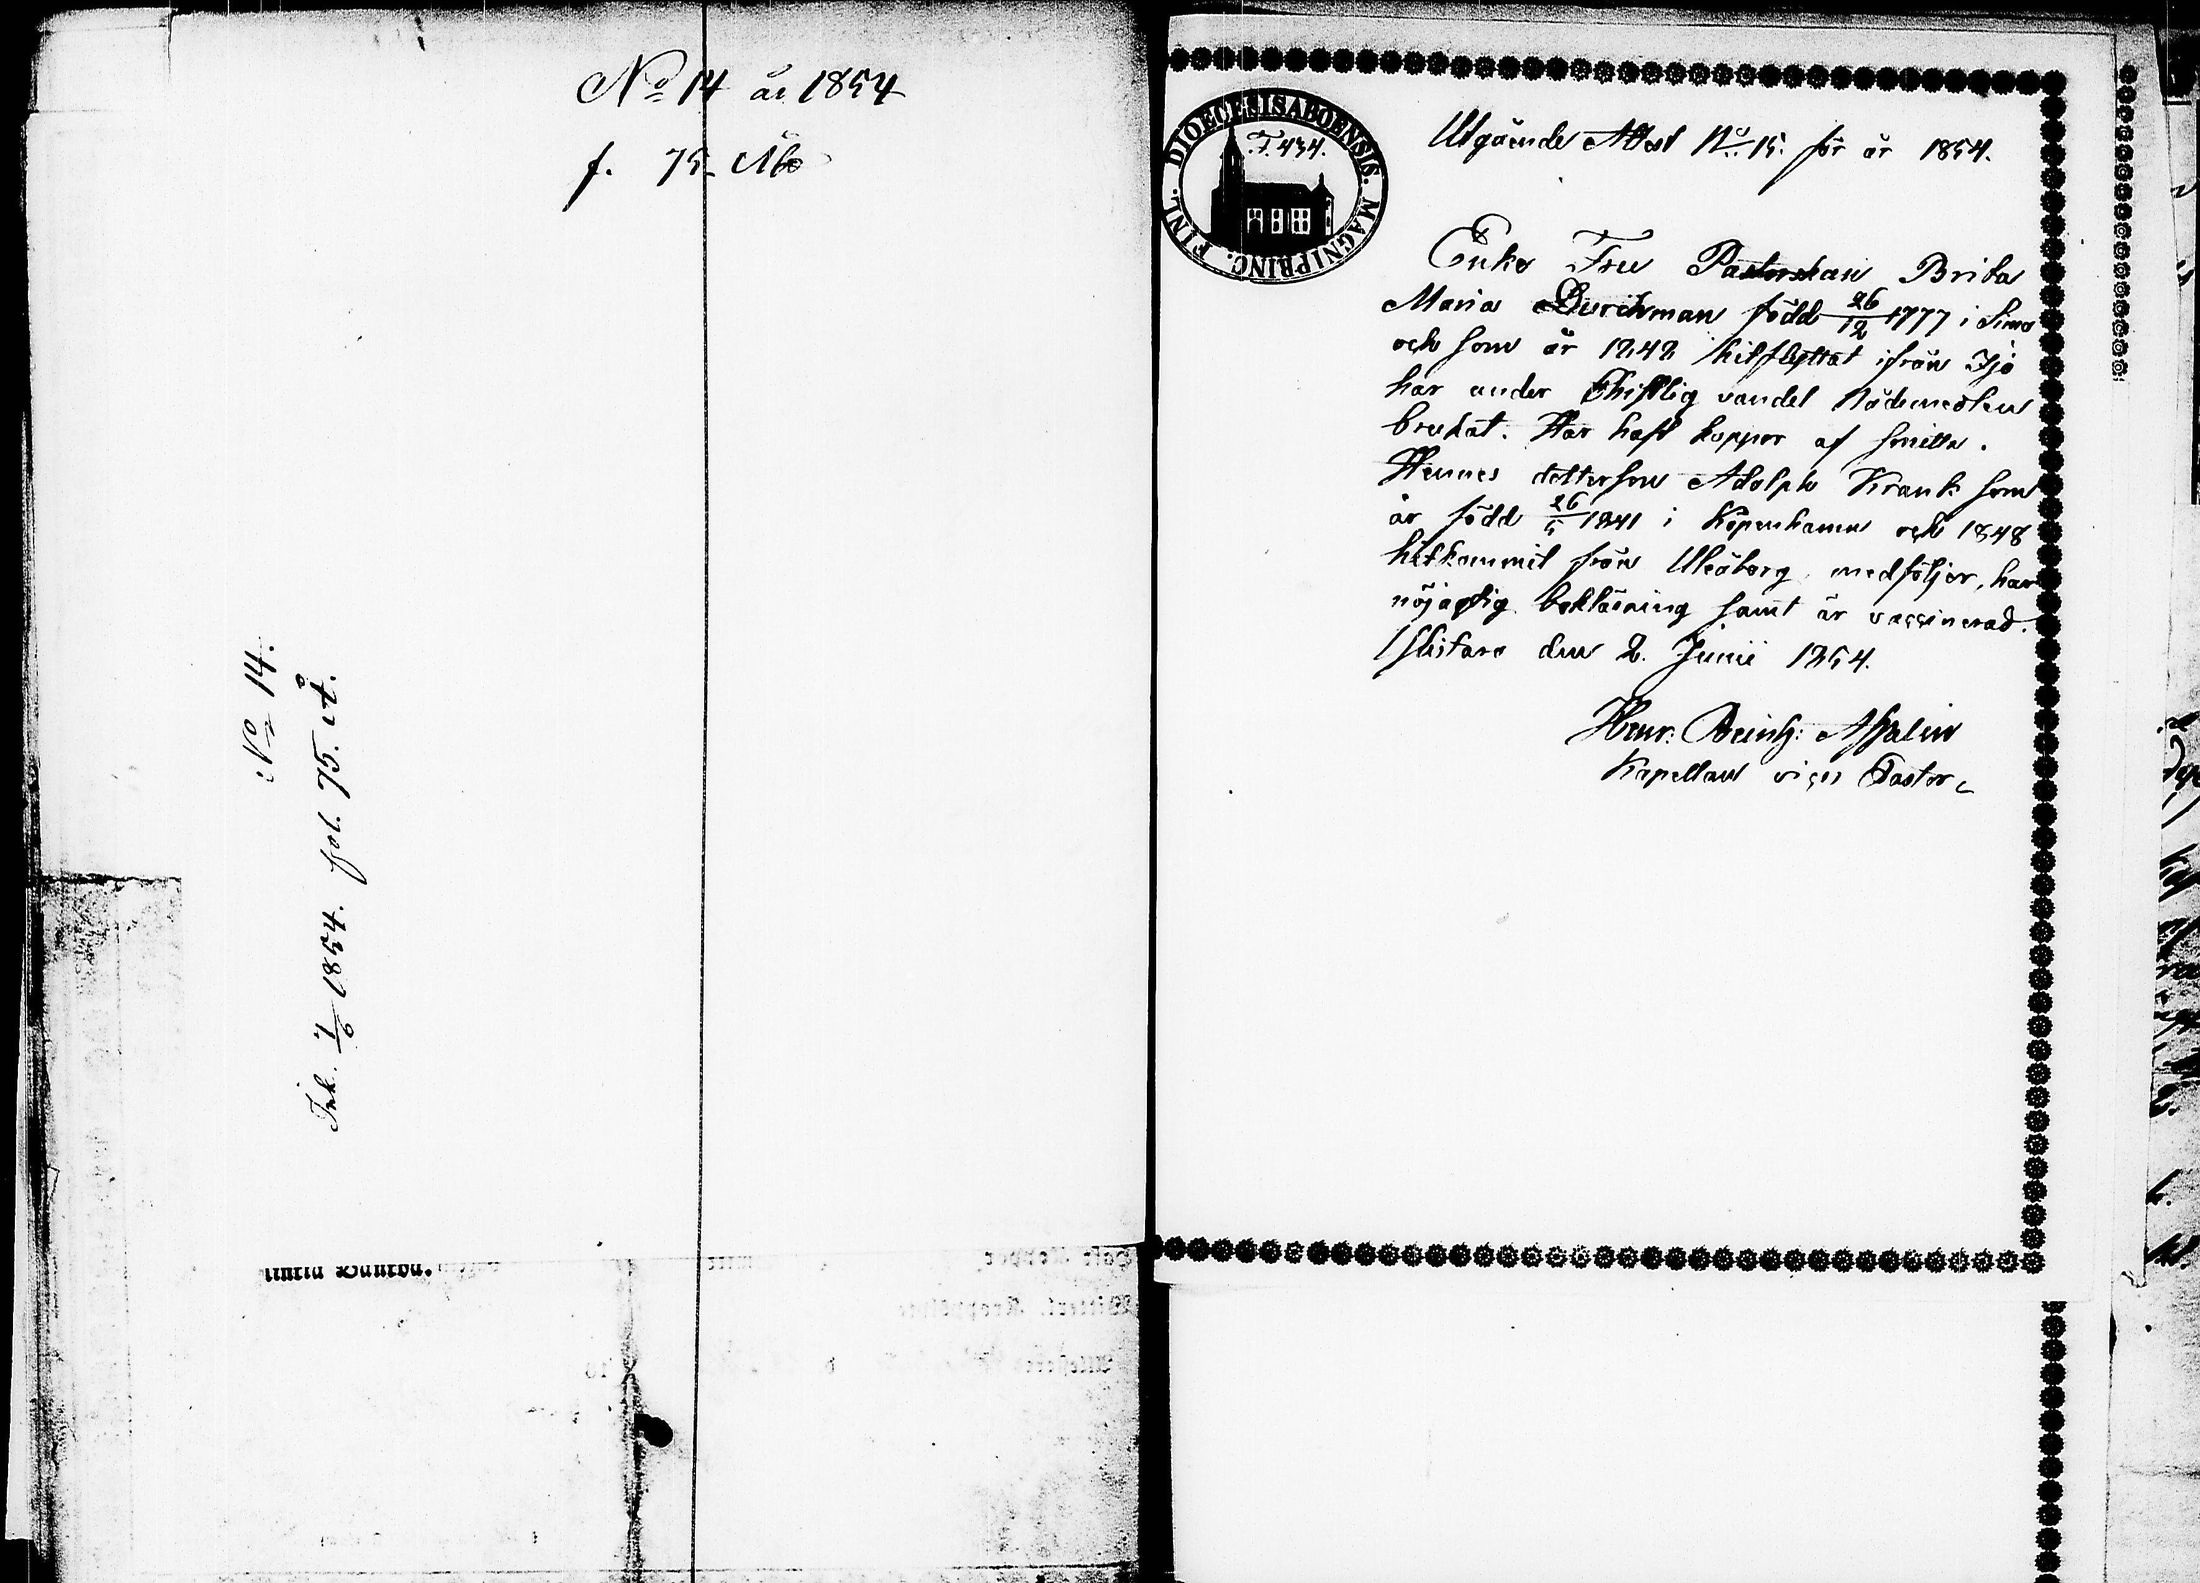 No 14 år 1854
f. 75. Åbo
No 14.
Ink. 7/6 1854. fol. 75. Å.
DIOECESIS ABOENSIS. MAGNI PRINC. FINL.
F. 434.
Utgående Attest No 15. för år 1854.
Enke Fru Pastorskan Brita
Maria Durchman född 26/12 1777 i Simo
och som år 1848 hitflyttat ifrån Ijo
har under Christlig vandel Nådemedlen
brukat. Har haft koppor af smitta.
Hennes dotterson Adolph Krank som
är född 26/5 1841 i Köpenhamn och 1848
hitkommit från Uleåborg, medföljer, har
nöjagtig bokläsning samt är vaccinerad.
Ylistaro den 2. Junii 1854.
Henr: Reinh:
Kapellan vices Pastor